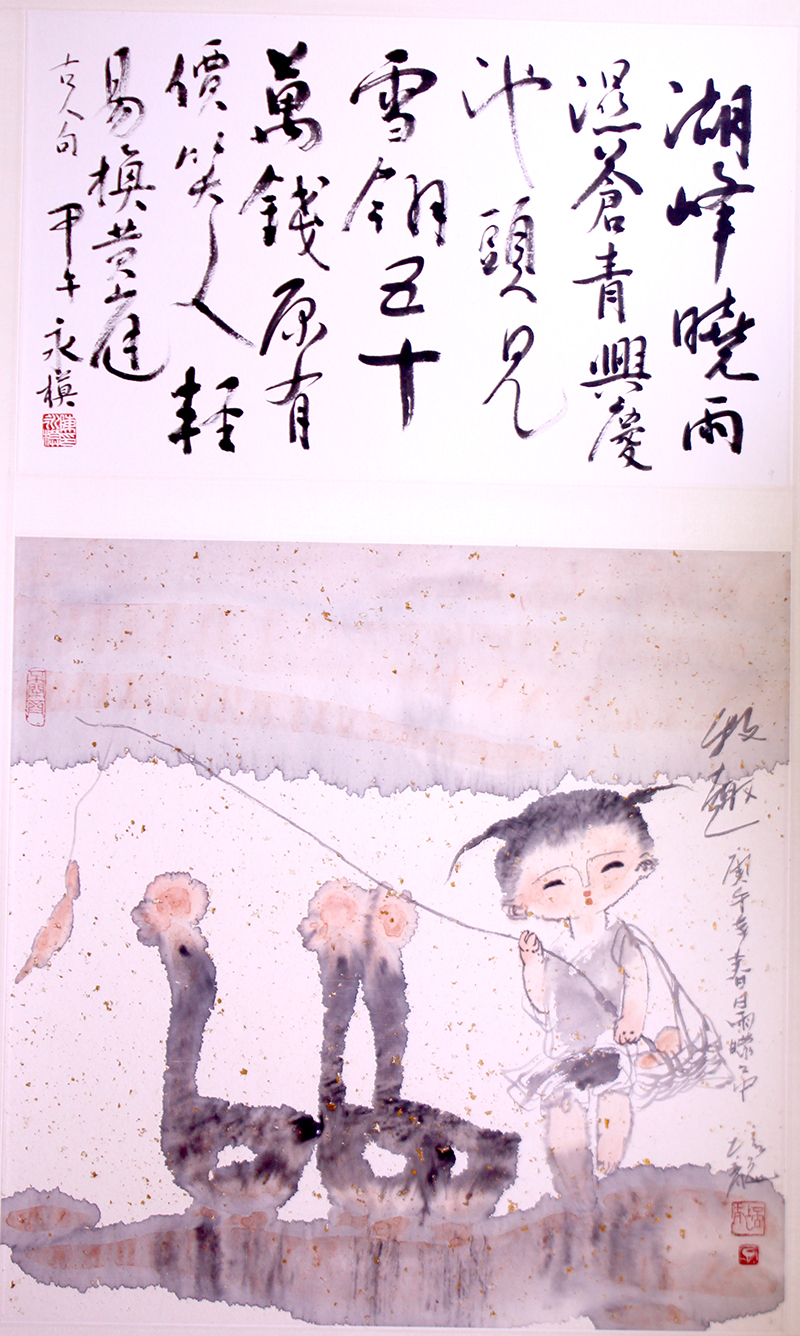 湖峰曉雨
濕蒼青興慶
池頭見
雪翎五十
萬錢原有
價笑人輕
易換黃庭
古人句
甲午永模
牧趣
庚午年春日雨蝶